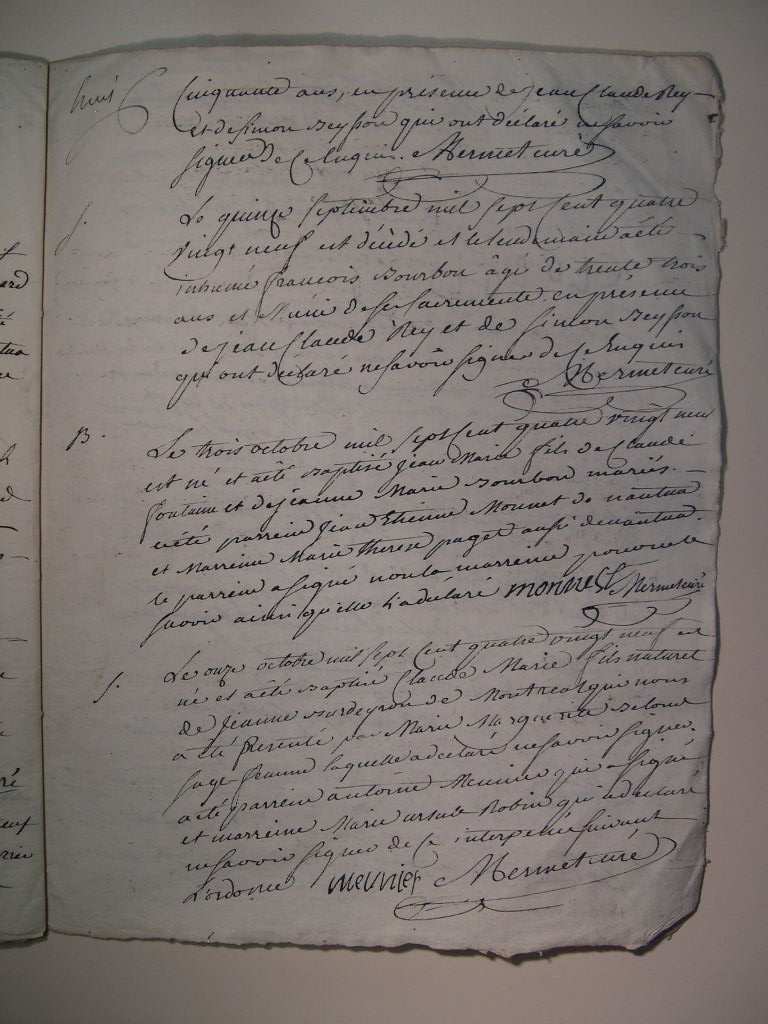 huit
Cinquante ans, en présence de jean Claude Rey
et de Simon Beysson qui ont déclaré ne savoir
signer de ce Enquis. Mermet curé
S.
Le quinze septembre mil sept cent quatre
vingt neuf est décédé et le lendemain a été
inhumé francois Bourbon âgé de trente trois
ans et Muni de se Sacremente en présence
de jean Claude Rey et de Simon Beysson
qui ont déclaré ne savoir signer de ce Enquis
Mermet curé
B.
Le trois octobre mil sept cent quatre vingt neuf
est né et a été Baptisé jean Marie fils de Claude
fontaine et de jeanne Marie Bourbon mariés.
a été parrein jean Etienne Monnet de nantua
et Marreine Marie Therese paget aussi de nantua.
le parrein a signé non la marreine pour ne le
savoir ainsi quelle l'a déclaré monnet Mermet curé
Le onze octobre mil sept cent quatre vingt neuf est
né et a été Baptisé Claude Marie fils naturel
de jeanne de Montreal qui nous
a été présenté par Marie Marguerite
sage femme laquelle a déclaré ne savoir signer.
a été parrein antoine Meunier qui a signé
et marreine Marie ursule Robin qui a déclaré
ne savoir signer de ce suivant
L'ordonce meunier Mermet curé